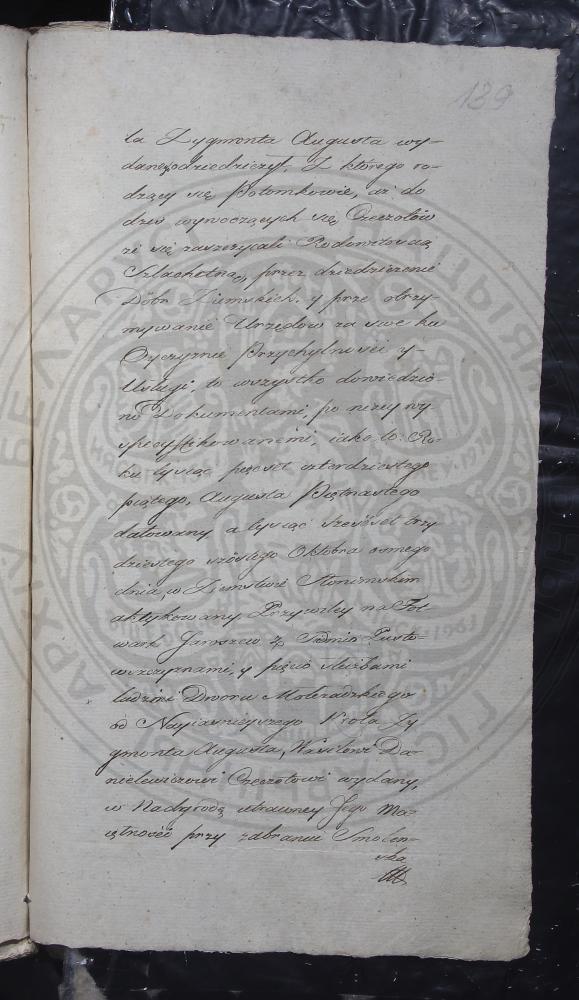 139
ła Zygmonta Augusta wy-
danego dziedziczył. Z którego ro-
dzący się Potomkowie, aż do
dziś wywodzących się Czeczotów
że się zaszczycali Rodowitością
Szlachetną, przez dziedziczenie
Dóbr Ziemskich, y prze otrzy-
mywanie Urzędów za swe ku
Oyczyznie Przychylności y
Usługi, to wszystko dowiedzio-
no Dokumentami, po niżey wy-
specyfikowanemi, iako to: Ro-
ku tysiąc pięćset czterdziestego
piątego, Augusta Piętnastego
datowany a tysiąc sześćset trzy
dziestego szóstego Oktobra osmego
dnia, w Ziemstwie Słonimskim
aktykowany Przywiley na Fol-
wark Jaroszew z Siedmio Pusto-
wszczyznami, y pięciu służbami
ludzmi Dworu Mołczadzkiego
od Nayiasnieyszego Krola Zy
gmonta Augusta, Wasilowi Da-
nielewiczowi Czeczotowi wydany,
w Nadgrodę utraconey Jego Ma-
iętności przy zabraniu Smolen-
ska